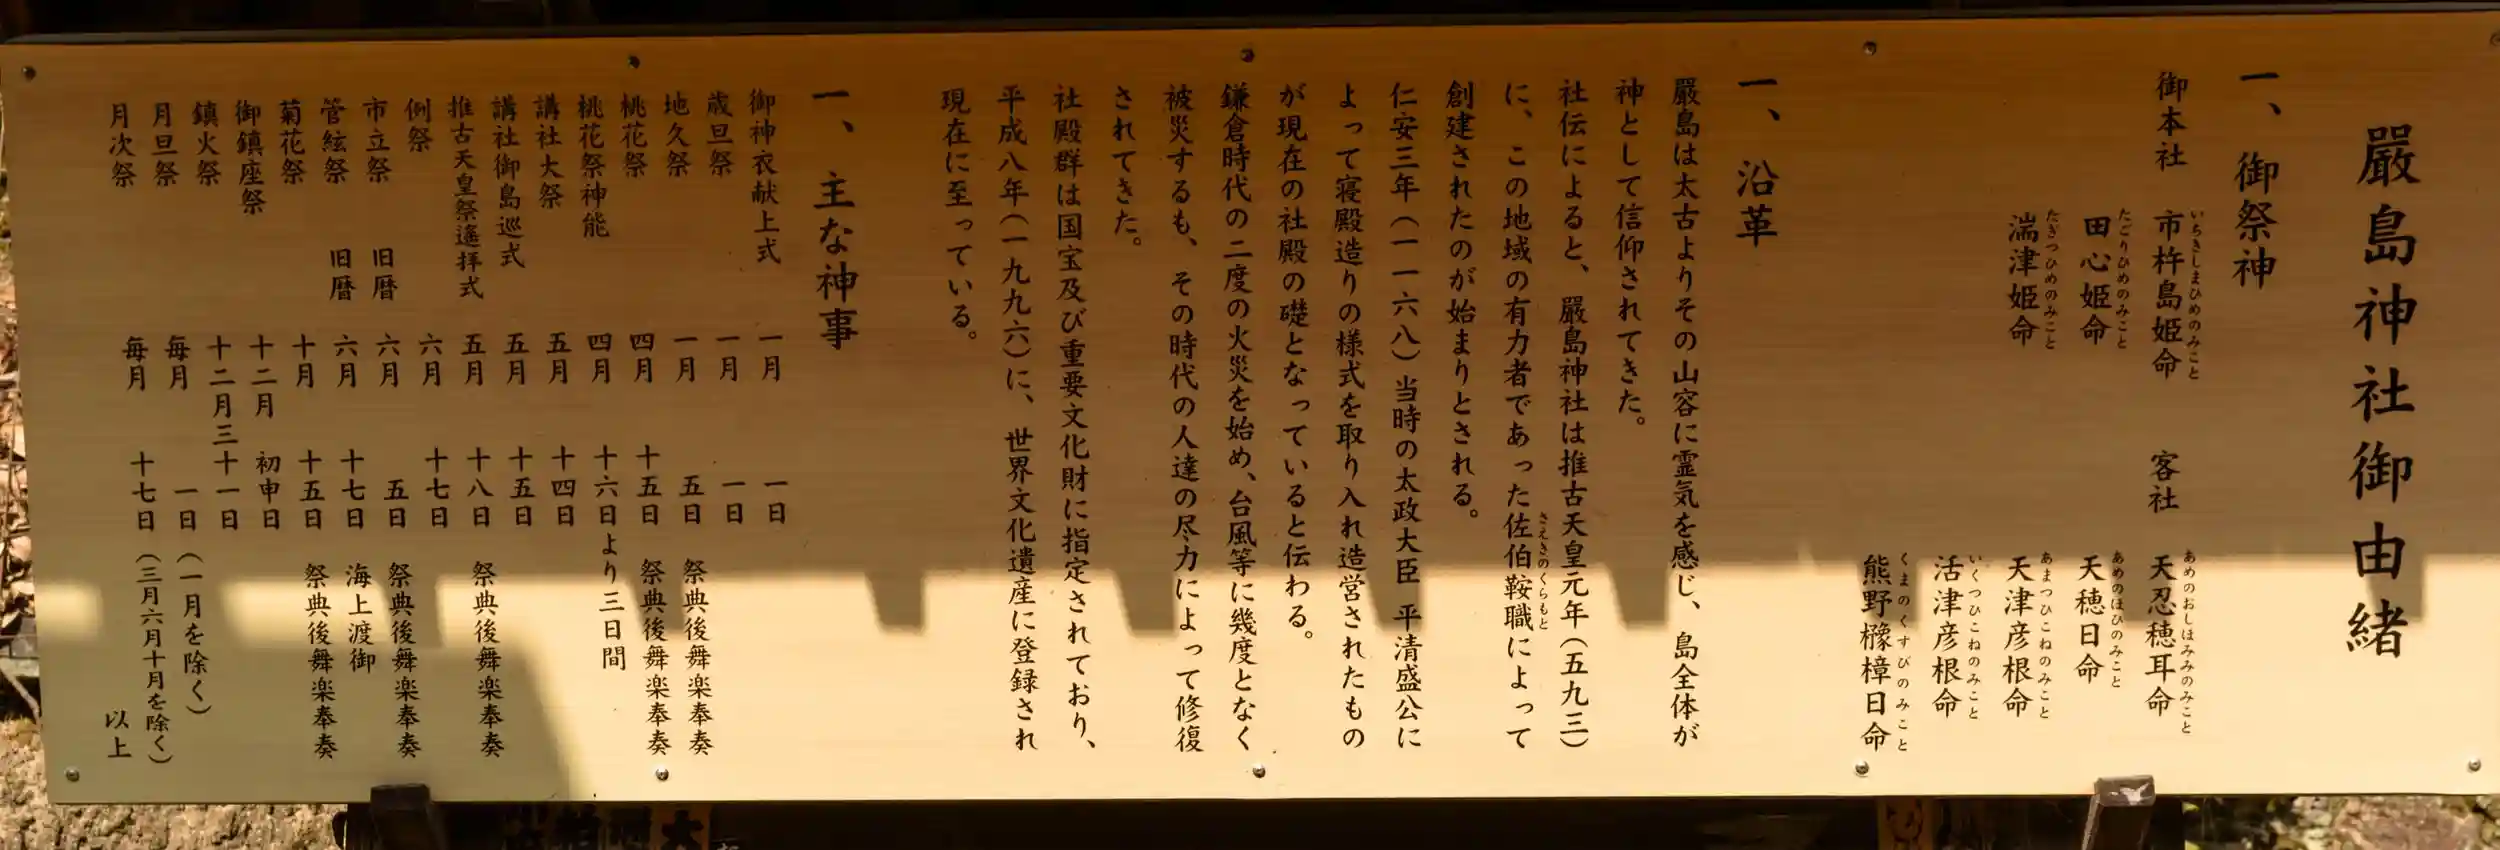 嚴島神社御由緒
一、御祭神
御本社 市杵島姫命 客社 天忍穂耳命
いちきしまひめのみこと あめのおしほみみのみこと
田心姫命 天穂日命
たごりひめのみこと あめのほひのみこと
湍津姫命 天津彦根命
たぎつひめのみこと あまつひこねのみこと
活津彦根命
いくつひこねのみこと
熊野櫲樟日命
くまのくすびのみこと
一、沿革
嚴島は太古よりその山容に霊気を感じ、島全体が
神として信仰されてきた。
社伝によると、嚴島神社は推古天皇元年(五九三)
に、この地域の有力者であった佐伯鞍職によって
さえきのくらもと
創建されたのが始まりとされる。
仁安三年(一一六八)当時の太政大臣 平清盛公に
よって寝殿造りの様式を取り入れ造営されたもの
が現在の社殿の礎となっていると伝わる。
鎌倉時代の二度の火災を始め、台風等に幾度となく
被災するも、その時代の人達の尽力によって修復
されてきた。
社殿群は国宝及び重要文化財に指定されており、
平成八年(一九九六)に、世界文化遺産に登録され
現在に至っている。
一、主な神事
御神衣献上式 一月 一日
歳旦祭 一月 一日
地久祭 一月 五日 祭典後舞楽奉奏
桃花祭 四月 十五日 祭典後舞楽奉奏
桃花祭神能 四月 十六日より三日間
講社大祭 五月 十四日
講社御島巡式 五月 十五日
推古天皇祭遙拝式 五月 十八日 祭典後舞楽奉奏
例祭 六月 十七日
市立祭 旧暦 六月 五日 祭典後舞楽奉奏
管絃祭 旧暦 六月 十七日 海上渡御
菊花祭 十月 十五日 祭典後舞楽奉奏
御鎮座祭 十二月 初申日
鎮火祭 十二月三十一日
月旦祭 毎月 一日(一月を除く)
月次祭 毎月 十七日(三月六月十月を除く)
以上